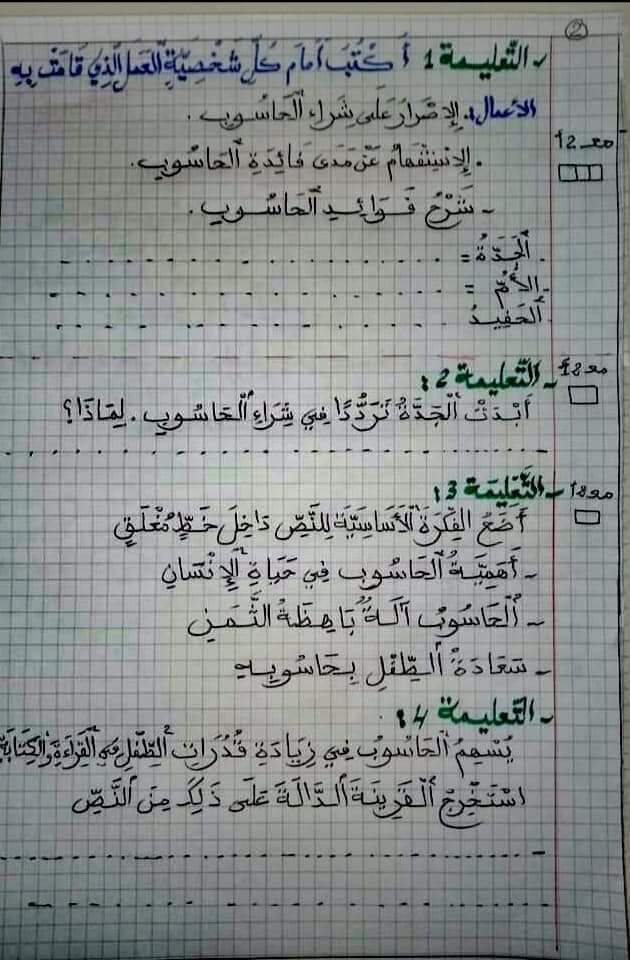 2
- التّعليمة 1 أَكْتُبُ أَمَامَ كُلِّ شَخْصِيَّةٍ الْعَمَلَ الَّذِي قَامَتْ بِهِ
الأعمال: . الإِصْرَارُ عَلَى شِرَاءِ الْحَاسُوبِ .
مع 2أ
. الاِسْتِفْهَامُ عَنْ مَدَى فَائِدَةِ الْحَاسُوبِ .
- شَرْحُ فَوَائِدِ الْحَاسُوبِ .
. الْجَدَّةُ = . . . . . . . . . . . . . . . .
- الأُمُّ = . . . . . . . . . . . . . . . .
. الْحَفِيدُ . . . . . . . . . . . . . . . .
- التّعليمة 2 :
أَبْدَتْ الْجَدَّةُ تَرَدُّدًا فِي شِرَاءِ الْحَاسُوبِ . لِمَاذَا ؟
. . . . . . . . . . . . . . . . . . . .
- التَّعْلِيمَة 3 :
أَضَعُ الفِكْرَةَ الْأَسَاسِيَّةَ لِلنَّصِّ دَاخِلَ خَطٍّ مُغْلَقٍ
- أَهَمِيَّةُ الْحَاسُوبِ فِي حَيَاةِ الْإِنْسَانِ
- الْحَاسُوبُ آلَةٌ بَاهِظَةُ الثَّمَنِ
- سَعَادَةُ الطِّفْلِ بِحَاسُوبِهِ
- التّعليمة 4 :
يُسْهِمُ الْحَاسُوبُ فِي زِيَادَةِ قُدُرَاتِ الطِّفْلِ فِي الْقِرَاءَةِ وَالْكِتَابَةِ
اسْتَخْرِجْ الْقَرِينَةَ الدَّالَةَ عَلَى ذَلِكَ مِنَ النَّصِّ
. . . . . . . . . . . . . . . . . . . .
. . . . . . . . . . . . . . . . . . . .